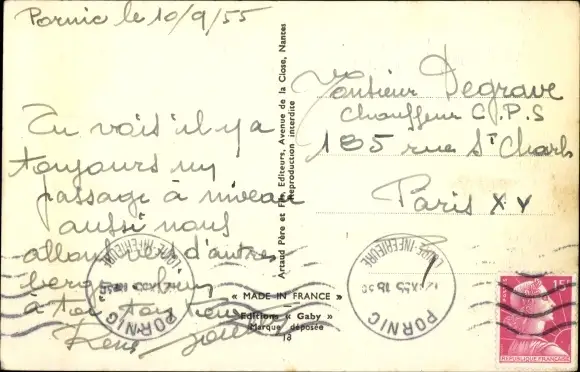 Pornic le 10/9/55
Tu vois il y a
toujours un
passage à niveau
aussi nous
d'autres
à toi ton vieux
René
Artaud Père et Fils, Editeurs, Avenue de la Close, Nantes
Reproduction interdite
« MADE IN FRANCE »
Editions « Gaby »
Marque déposée
Monsieur Degrave
Chauffeur C.P.S
185 rue St Charles
Paris XV
PORNIC
LOIRE-INFERIEURE
PORNIC
LOIRE-INFERIEURE
15F
REPUBLIQUE FRANCAISE